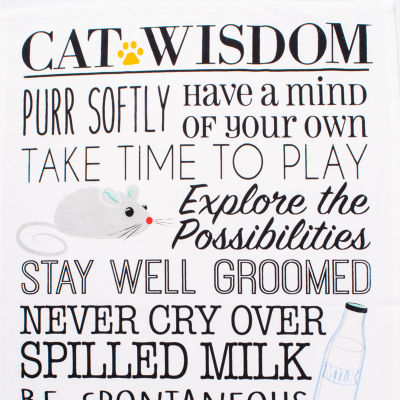 CAT WISDOM
PURR SOFTLY
Have a mind
of your own
TAKE TIME TO PLAY
Explore the
Possibilities
STAY WELL GROOMED
NEVER CRY OVER
SPILLED MILK
MILK
BE SPONTANEOUS